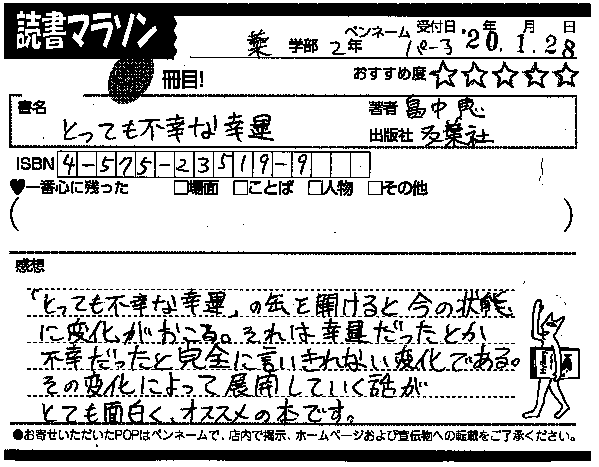 読書マラソン
薬 学部 2年 ペンネーム ルーろ 受付日 '20年 1月 28日
冊目! おすすめ度☆☆☆☆☆
書名 とっても不幸な幸運
著者 畠中 恵
出版社 双葉社
ISBN 4-575-23519-9
♥一番心に残った □場面 □ことば □人物 □その他
( )
感想
「とっても不幸な幸運」の缶を開けると今の状態
に変化がおこる。それは幸運だったとか
不幸だったと完全に言いきれない変化である。
その変化によって展開していく話が
とても面白く、オススメの本です。
●お寄せいただいたPOPはペンネームで、店内で掲示、ホームページおよび宣伝物への転載をご了承ください。